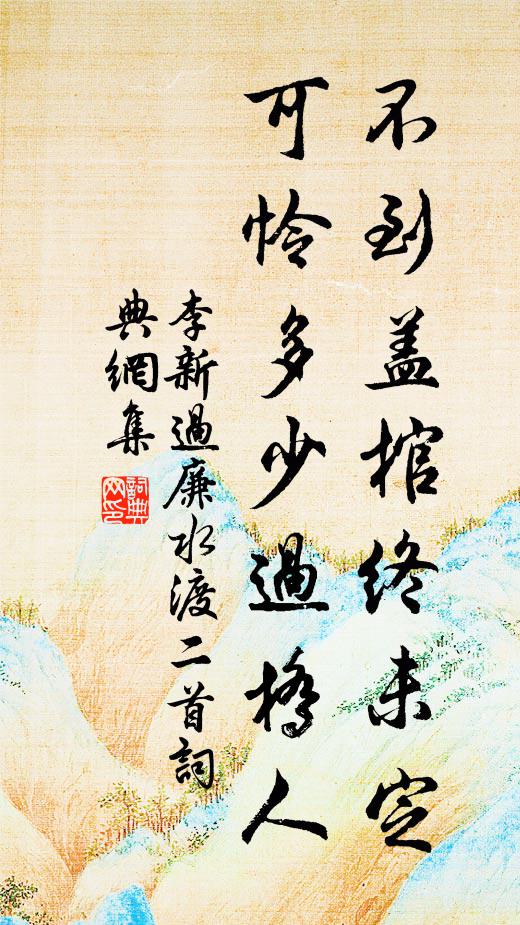 不到盖棺终未定
可怜多少過橋人
李新過廉水渡二首詞
典網集
詞典
网印